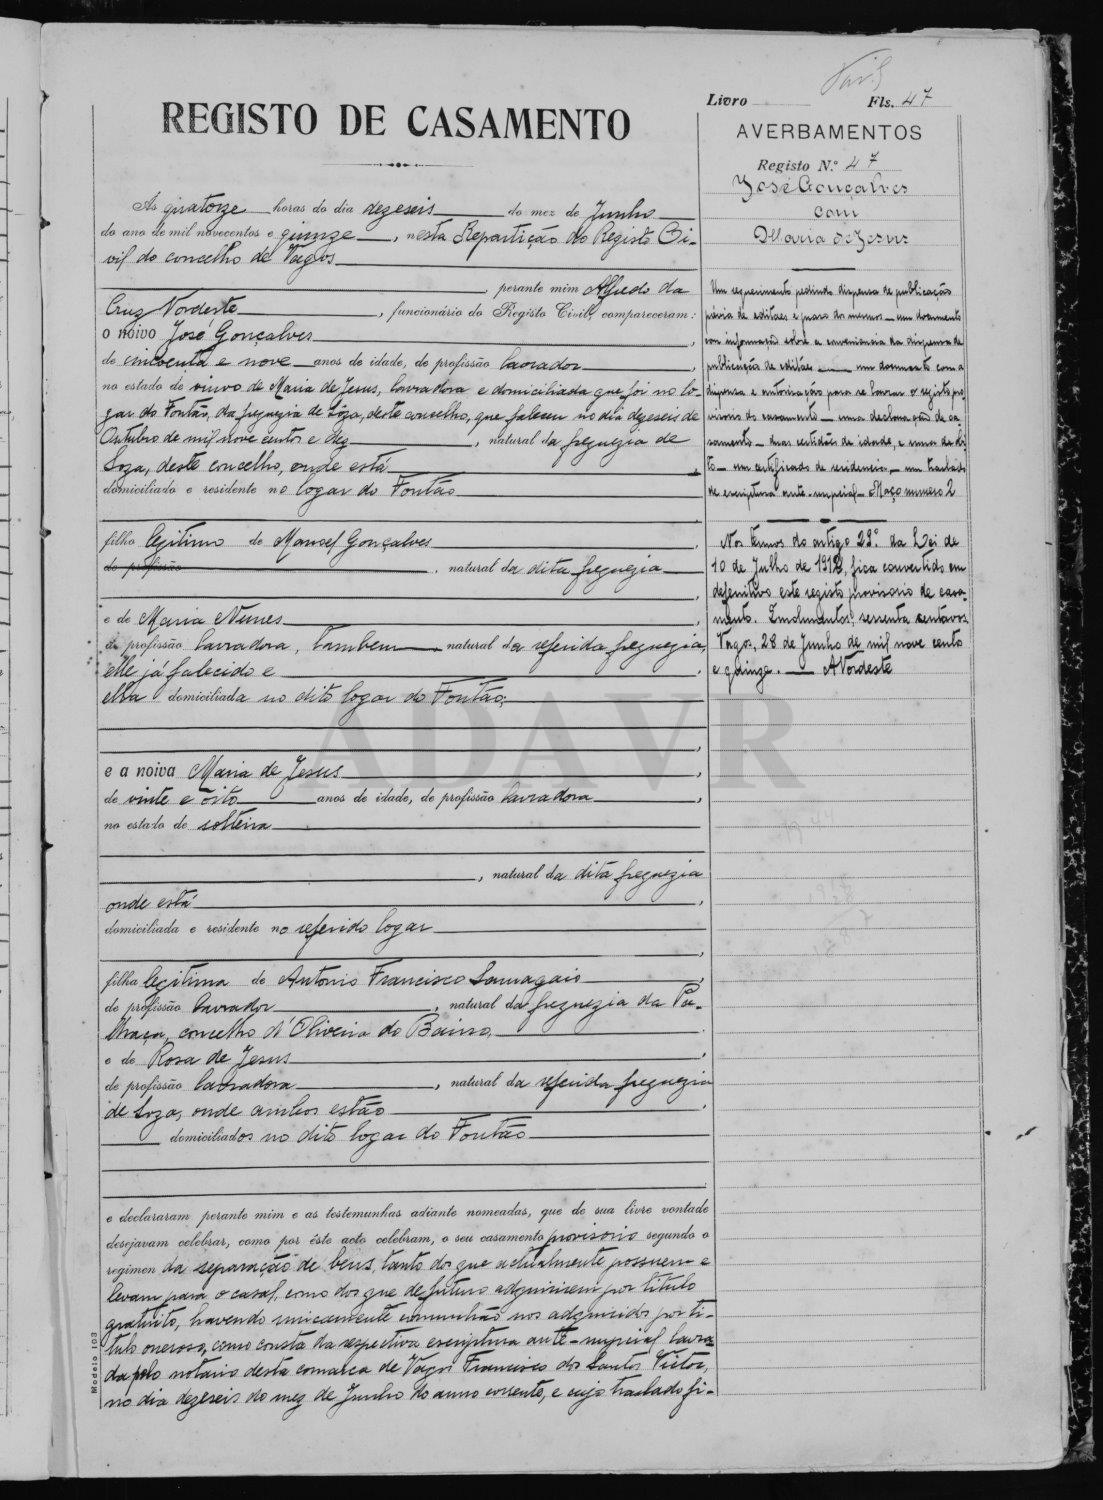 Livro Fls. 47
REGISTO DE CASAMENTO
AVERBAMENTOS
Registo N.º 47
José Gonçalves
com
Maria de Jesus
Ás quatorze horas do dia dezeseis do mez de Junho
do ano de mil novecentos e quinze, nesta Repartição do Registo Ci-
vil do concelho de Vagos
perante mim Alfredo da
Cruz Nordeste, funcionário do Registo Civil, compareceram:
o noivo José Gonçalves,
de cincoenta e nove anos de idade, de profissão lavrador,
no estado de viuvo de Maria de Jesus, lavradora e domiciliada que foi no lo-
gar do Fontão, da freguezia de Soza, deste concelho, que faleceu no dia dezeseis de
Outubro de mil nove centos e dez, natural da freguezia de
Soza, deste concelho, onde está
domiciliado e residente no logar do Fontão
filho legitimo de Manoel Gonçalves,
de profissão, natural da dita freguezia
e de Maria Nunes,
de profissão lavradora, tambem natural da referida freguezia,
elle já falecido e
ella domiciliada no dito logar do Fontão;
e a noiva Maria de Jesus,
de vinte e oito anos de idade, de profissão lavradora,
no estado de solteira
, natural da dita freguezia
onde está,
domiciliada e residente no referido logar
filha legitima de Antonio Francisco Samagaio,
de profissão lavrador, natural da freguezia da Pa-
lhaça, concelho d'Oliveira do Bairro,
e de Rosa de Jesus,
de profissão lavradora, natural da referida freguezia
de Soza, onde ambos estão,
domiciliados no dito logar do Fontão
e declararam perante mim e as testemunhas adiante nomeadas, que de sua livre vontade
desejavam celebrar, como por éste acto celebram, o seu casamento provisorio segundo o
regimen da separação de bens, tanto dos que actualmente possuem e
levam para o casal, como dos que de futuro adquirirem por titulo
gratuito, havendo unicamente comunhão nos adquiridos por ti-
tulo oneroso, como consta da respectiva escriptura ante-nupcial lavra-
da pelo notario desta comarca de Vagos Francisco dos Santos Victor,
no dia dezeseis do mez de Junho do anno corrente, e cujo traslado fi-
Modelo 103
Um requerimento pedindo dispensa de publicação
prévia de editaes e prazo dos mesmos — um documento
com informação sobre a conveniencia da dispensa de
publicação de editaes — um documento com a
dispensa e autorisação para se lavrar o registo pro-
visorio do casamento — uma declaração de ca-
samento — duas certidões de idade, e uma de obi-
to — um certificado de residencia — um traslado
de escriptura ante-nupcial — Maço numero 2
Nos termos do artigo 29.º da Lei de
10 de Julho de 1912, fica convertido em
defenitivo este registo provisorio de casa-
mento. Emolumentos, sessenta centavos.
Vagos, 28 de Junho de mil nove cento
e quinze. — ANordeste
ADAVR